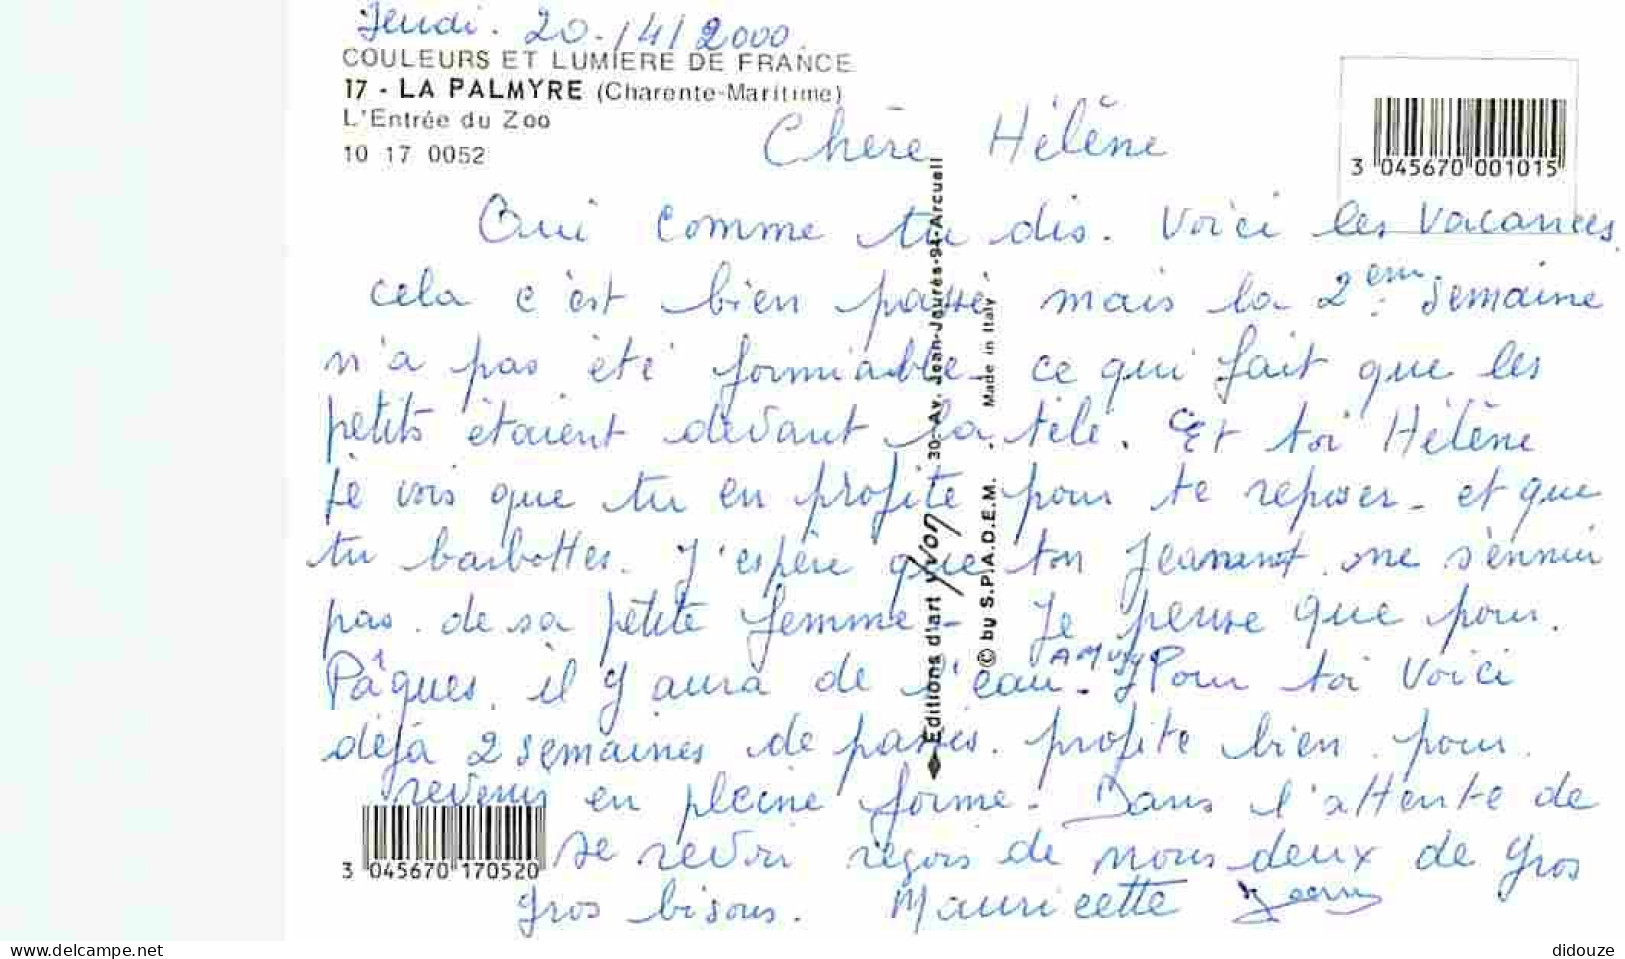 Jeudi. 20./4/2000.
COULEURS ET LUMIERE DE FRANCE
17 - LA PALMYRE (Charente-Maritime)
L'Entrée du Zoo
10 17 0052
3 045670 001015
Chère Hélène
Oui comme tu dis. Voici les vacances
cela c'est bien passé mais la 2em semaine
n'a pas été formiable ce qui fait que les
petits étaient devant la télé. Et toi Hélène
je vois que tu en profite pour te reposer - et que
tu barbottes. J'espère que ton Jeannot ne s'ennui
pas. de sa petite femme - Je pense que pour.
Pâques. il y aura de l'eau. Pour toi Voici
déjà 2 semaines de passés. profite bien. pour.
revenir en pleine forme - Dans l'attente de
se revoir reçois de nous deux de gros
gros bisous. Mauricette
3 045670 170520
Editions d'art YVON 30-Av. Jean-Jaurès-94-Arcueil
© by S.P.A.D.E.M. - Made in Italy -
www.delcampe.net
didouze